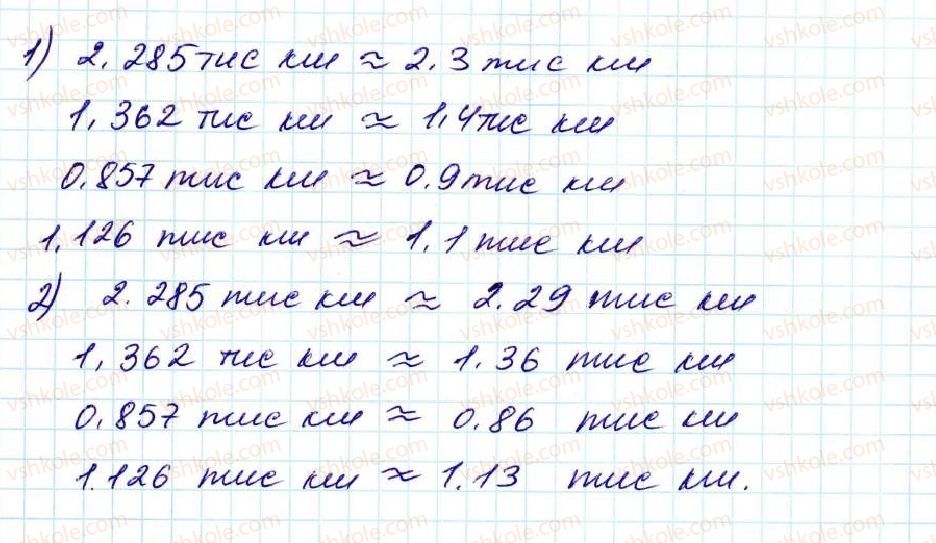 1) 2,285 тис км ≈ 2,3 тис км
1,362 тис км ≈ 1,4 тис км
0,857 тис км ≈ 0,9 тис км
1,126 тис км ≈ 1,1 тис км
2) 2,285 тис км ≈ 2,29 тис км
1,362 тис км ≈ 1,36 тис км
0,857 тис км ≈ 0,86 тис км
1,126 тис км ≈ 1,13 тис км.